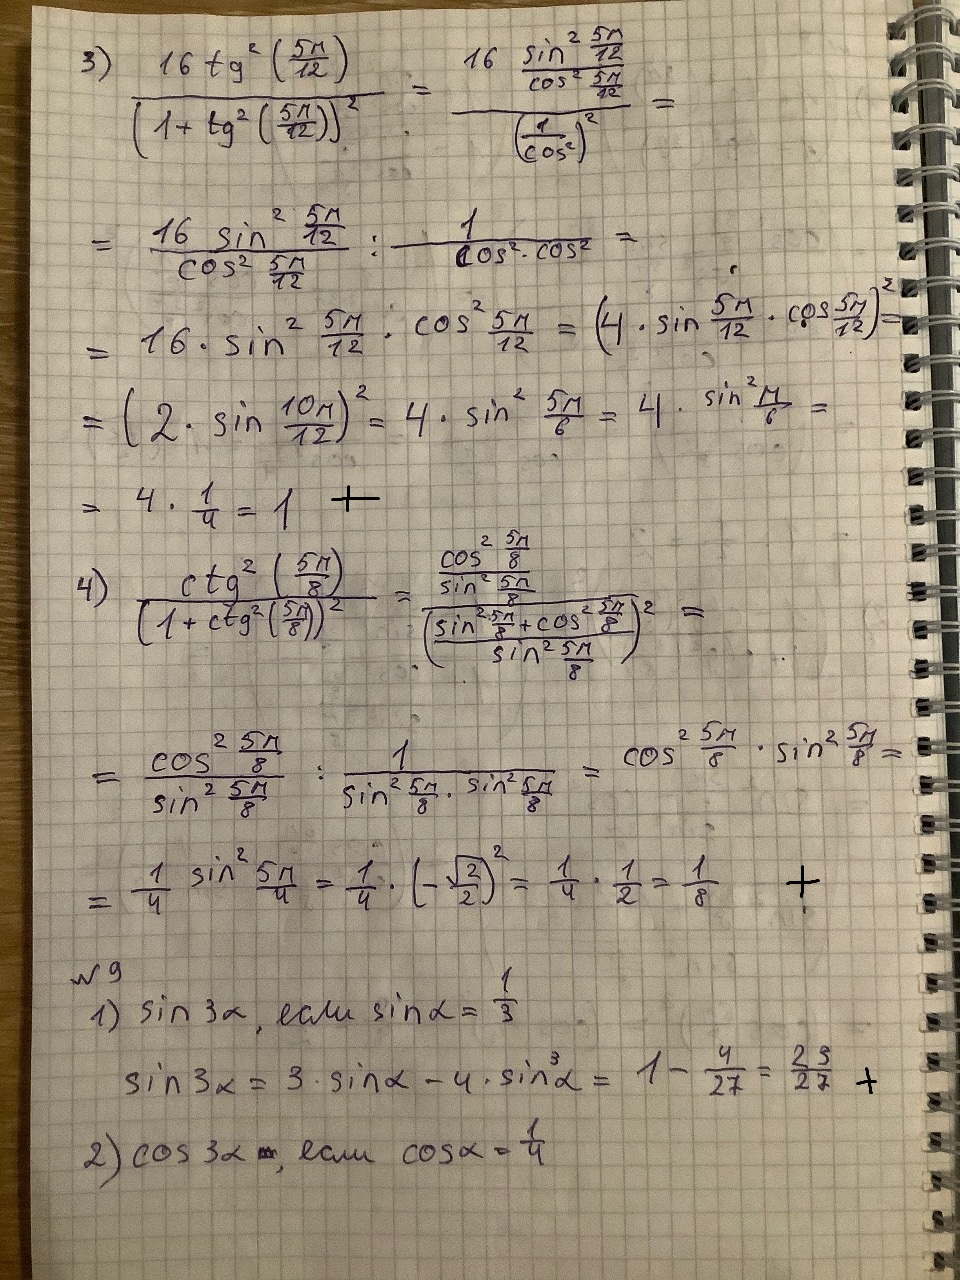 3) 16 tg² (5π/12) / (1 + tg² (5π/12))² = 16 sin² 5π/12 / cos² 5π/12 / (1/cos²)² =
= 16 sin² 5π/12 / cos² 5π/12 : 1 / cos² · cos² =
= 16 · sin² 5π/12 · cos² 5π/12 = (4 · sin 5π/12 · cos 5π/12)² =
= (2 · sin 10π/12)² = 4 · sin² 5π/6 = 4 · sin² π/6 =
= 4 · 1/4 = 1 +
4) ctg² (5π/8) / (1 + ctg² (5π/8))² = cos² 5π/8 / sin² 5π/8 / (sin² 5π/8 + cos² 5π/8 / sin² 5π/8)² =
= cos² 5π/8 / sin² 5π/8 : 1 / sin² 5π/8 · sin² 5π/8 = cos² 5π/8 · sin² 5π/8 =
= 1/4 sin² 5π/4 = 1/4 · (-√2/2)² = 1/4 · 1/2 = 1/8 +
№ 9
1) sin 3α, если sin α = 1/3
sin 3α = 3 · sin α - 4 · sin³ α = 1 - 4/27 = 23/27 +
2) cos 3α, если cos α = 1/4